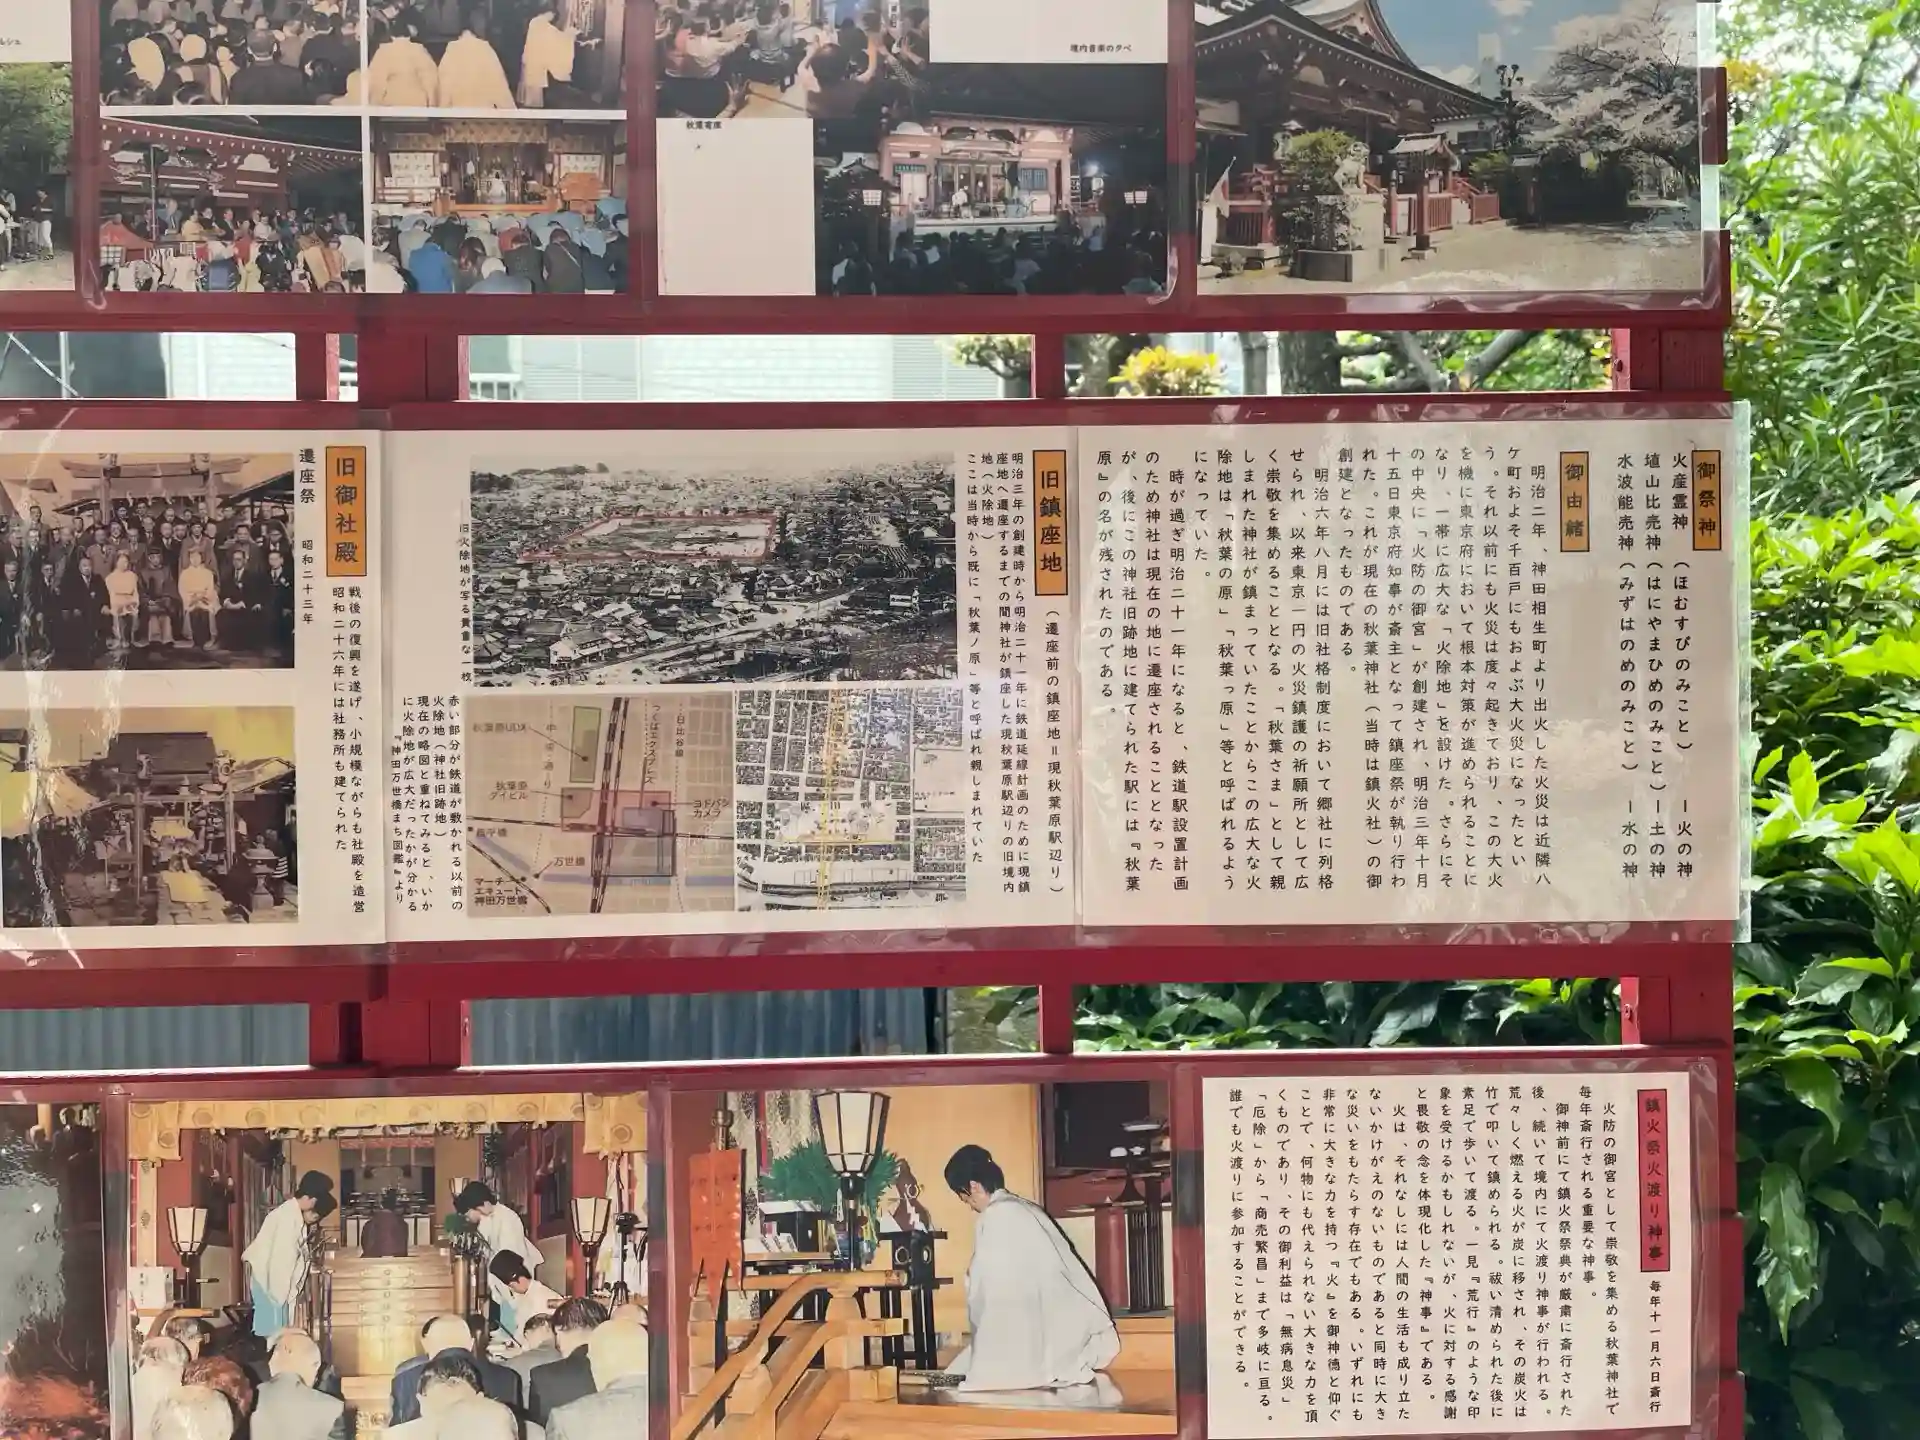 ルシェ
境内音楽の夕べ
秋還寄席
御祭神
火産霊神(ほむすびのみこと)ー火の神
埴山比売神(はにやまひめのみこと)ー土の神
水波能売神(みずはのめのみこと)ー水の神
御由緒
明治二年、神田相生町より出火した火災は近隣八
ケ町およそ千百戸にもおよぶ大火災になったとい
う。それ以前にも火災は度々起きており、この大火
を機に東京府において根本対策が進められることに
なり、一帯に広大な「火除地」を設けた。さらにそ
の中央に「火防の御宮」が創建され、明治三年十月
十五日東京府知事が斎主となって鎮座祭が執り行わ
れた。これが現在の秋葉神社(当時は鎮火社)の御
創建となったものである。
明治六年八月には旧社格制度において郷社に列格
せられ、以来東京一円の火災鎮護の祈願所として広
く崇敬を集めることとなる。「秋葉さま」として親
しまれた神社が鎮まっていたことからこの広大な火
除地は「秋葉の原」「秋葉っ原」等と呼ばれるよう
になっていた。
時が過ぎ明治二十一年になると、鉄道駅設置計画
のため神社は現在の地に遷座されることとなった
が、後にこの神社旧跡地に建てられた駅には『秋葉
原』の名が残されたのである。
旧鎮座地
(遷座前の鎮座地=現秋葉原駅辺り)
明治三年の創建時から明治二十一年に鉄道延線計画のために現鎮
座地へ遷座するまでの間神社が鎮座した現秋葉原駅辺りの旧境内
地(火除地)
ここは当時から既に「秋葉ノ原」等と呼ばれ親しまれていた
旧火除地が写る貴重な一枚
秋葉原UDX
中央通り
つくばエクスプレス
日比谷線
秋葉原
ダイビル
ヨドバシ
カメラ
昌平橋
万世橋
マーチ
エキュート
神田万世橋
赤い部分が鉄道が敷かれる以前の
火除地(神社旧跡地)
現在の略図と重ねてみると、いか
に火除地が広大だったかが分かる
『神田万世橋まち図鑑』より
旧御社殿
戦後の復興を遂げ、小規模ながらも社殿を造営
昭和二十六年には社務所も建てられた
遷座祭 昭和二十三年
鎮火祭火渡り神事
毎年十一月六日斎行
火防の御宮として崇敬を集める秋葉神社で
毎年斎行される重要な神事。
御神前にて鎮火祭祭典が厳粛に斎行された
後、続いて境内にて火渡り神事が行われる。
荒々しく燃える火が炭に移され、その炭火は
竹で叩いて鎮められる。祓い清められた後に
素足で歩いて渡る。一見『荒行』のような印
象を受けるかもしれないが、火に対する感謝
と畏敬の念を体現化した『神事』である。
火は、それなしには人間の生活も成り立た
ないかけがえのないものであると同時に大き
な災いをもたらす存在でもある。いずれにも
非常に大きな力を持つ『火』を御神徳と仰ぐ
ことで、何物にも代えられない大きな力を頂
くものであり、その御利益は「無病息災」
「厄除」から「商売繁昌」まで多岐に亘る。
誰でも火渡りに参加することができる。